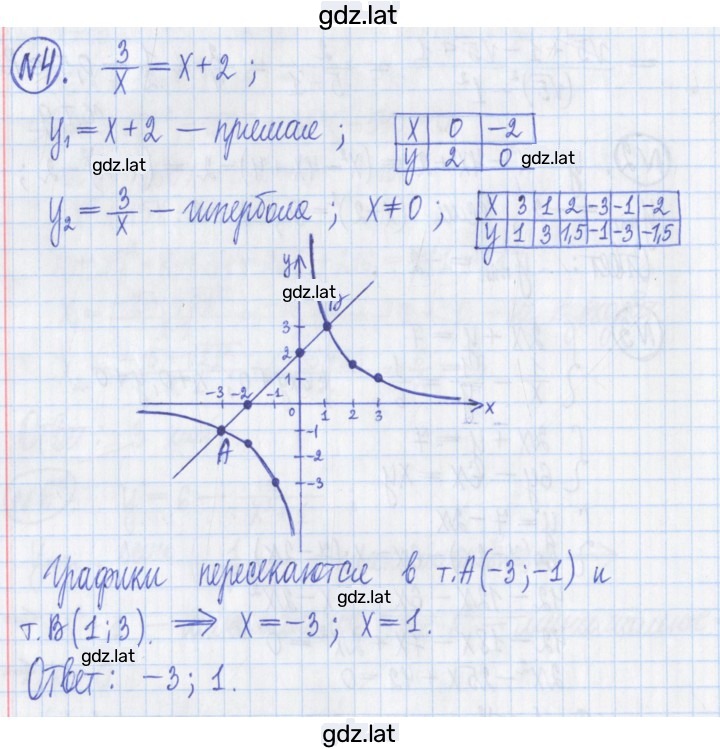 gdz.lat
№4. 3/x = x+2 ;
y₁ = x+2 — прямая ; x 0 -2
y 2 0
gdz.lat gdz.lat
y₂ = 3/x — гипербола ; x≠0 ; x 3 1 2 -3 -1 -2
y 1 3 1,5 -1 -3 -1,5
y
gdz.lat
3
2
1
-3 -2 -1 0 1 2 3 x
A -1
-2
-3
Графики пересекаются в т.A(-3;-1) и
gdz.lat
т.B(1;3). ⟹ x=-3; x=1.
gdz.lat
Ответ: -3; 1.
gdz.lat